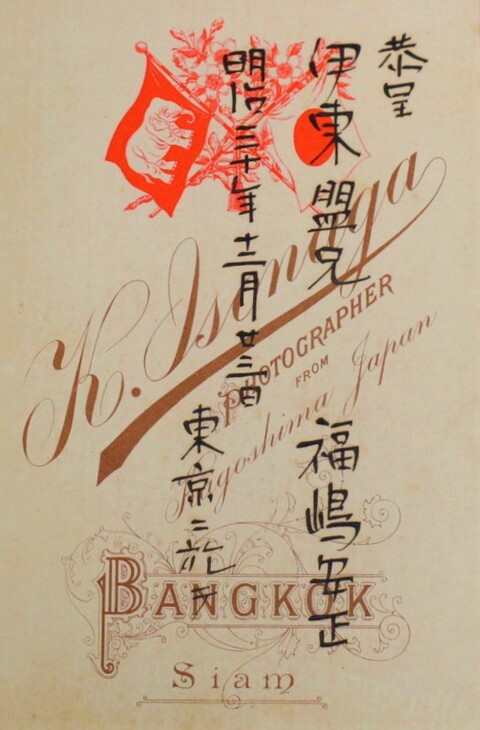 恭呈
伊東盟兄
福嶋安正
明治三十年十二月廿三日
東京ニ於テ
K. Isonaga
PHOTOGRAPHER
FROM
Kagoshima Japan
BANGKOK
Siam